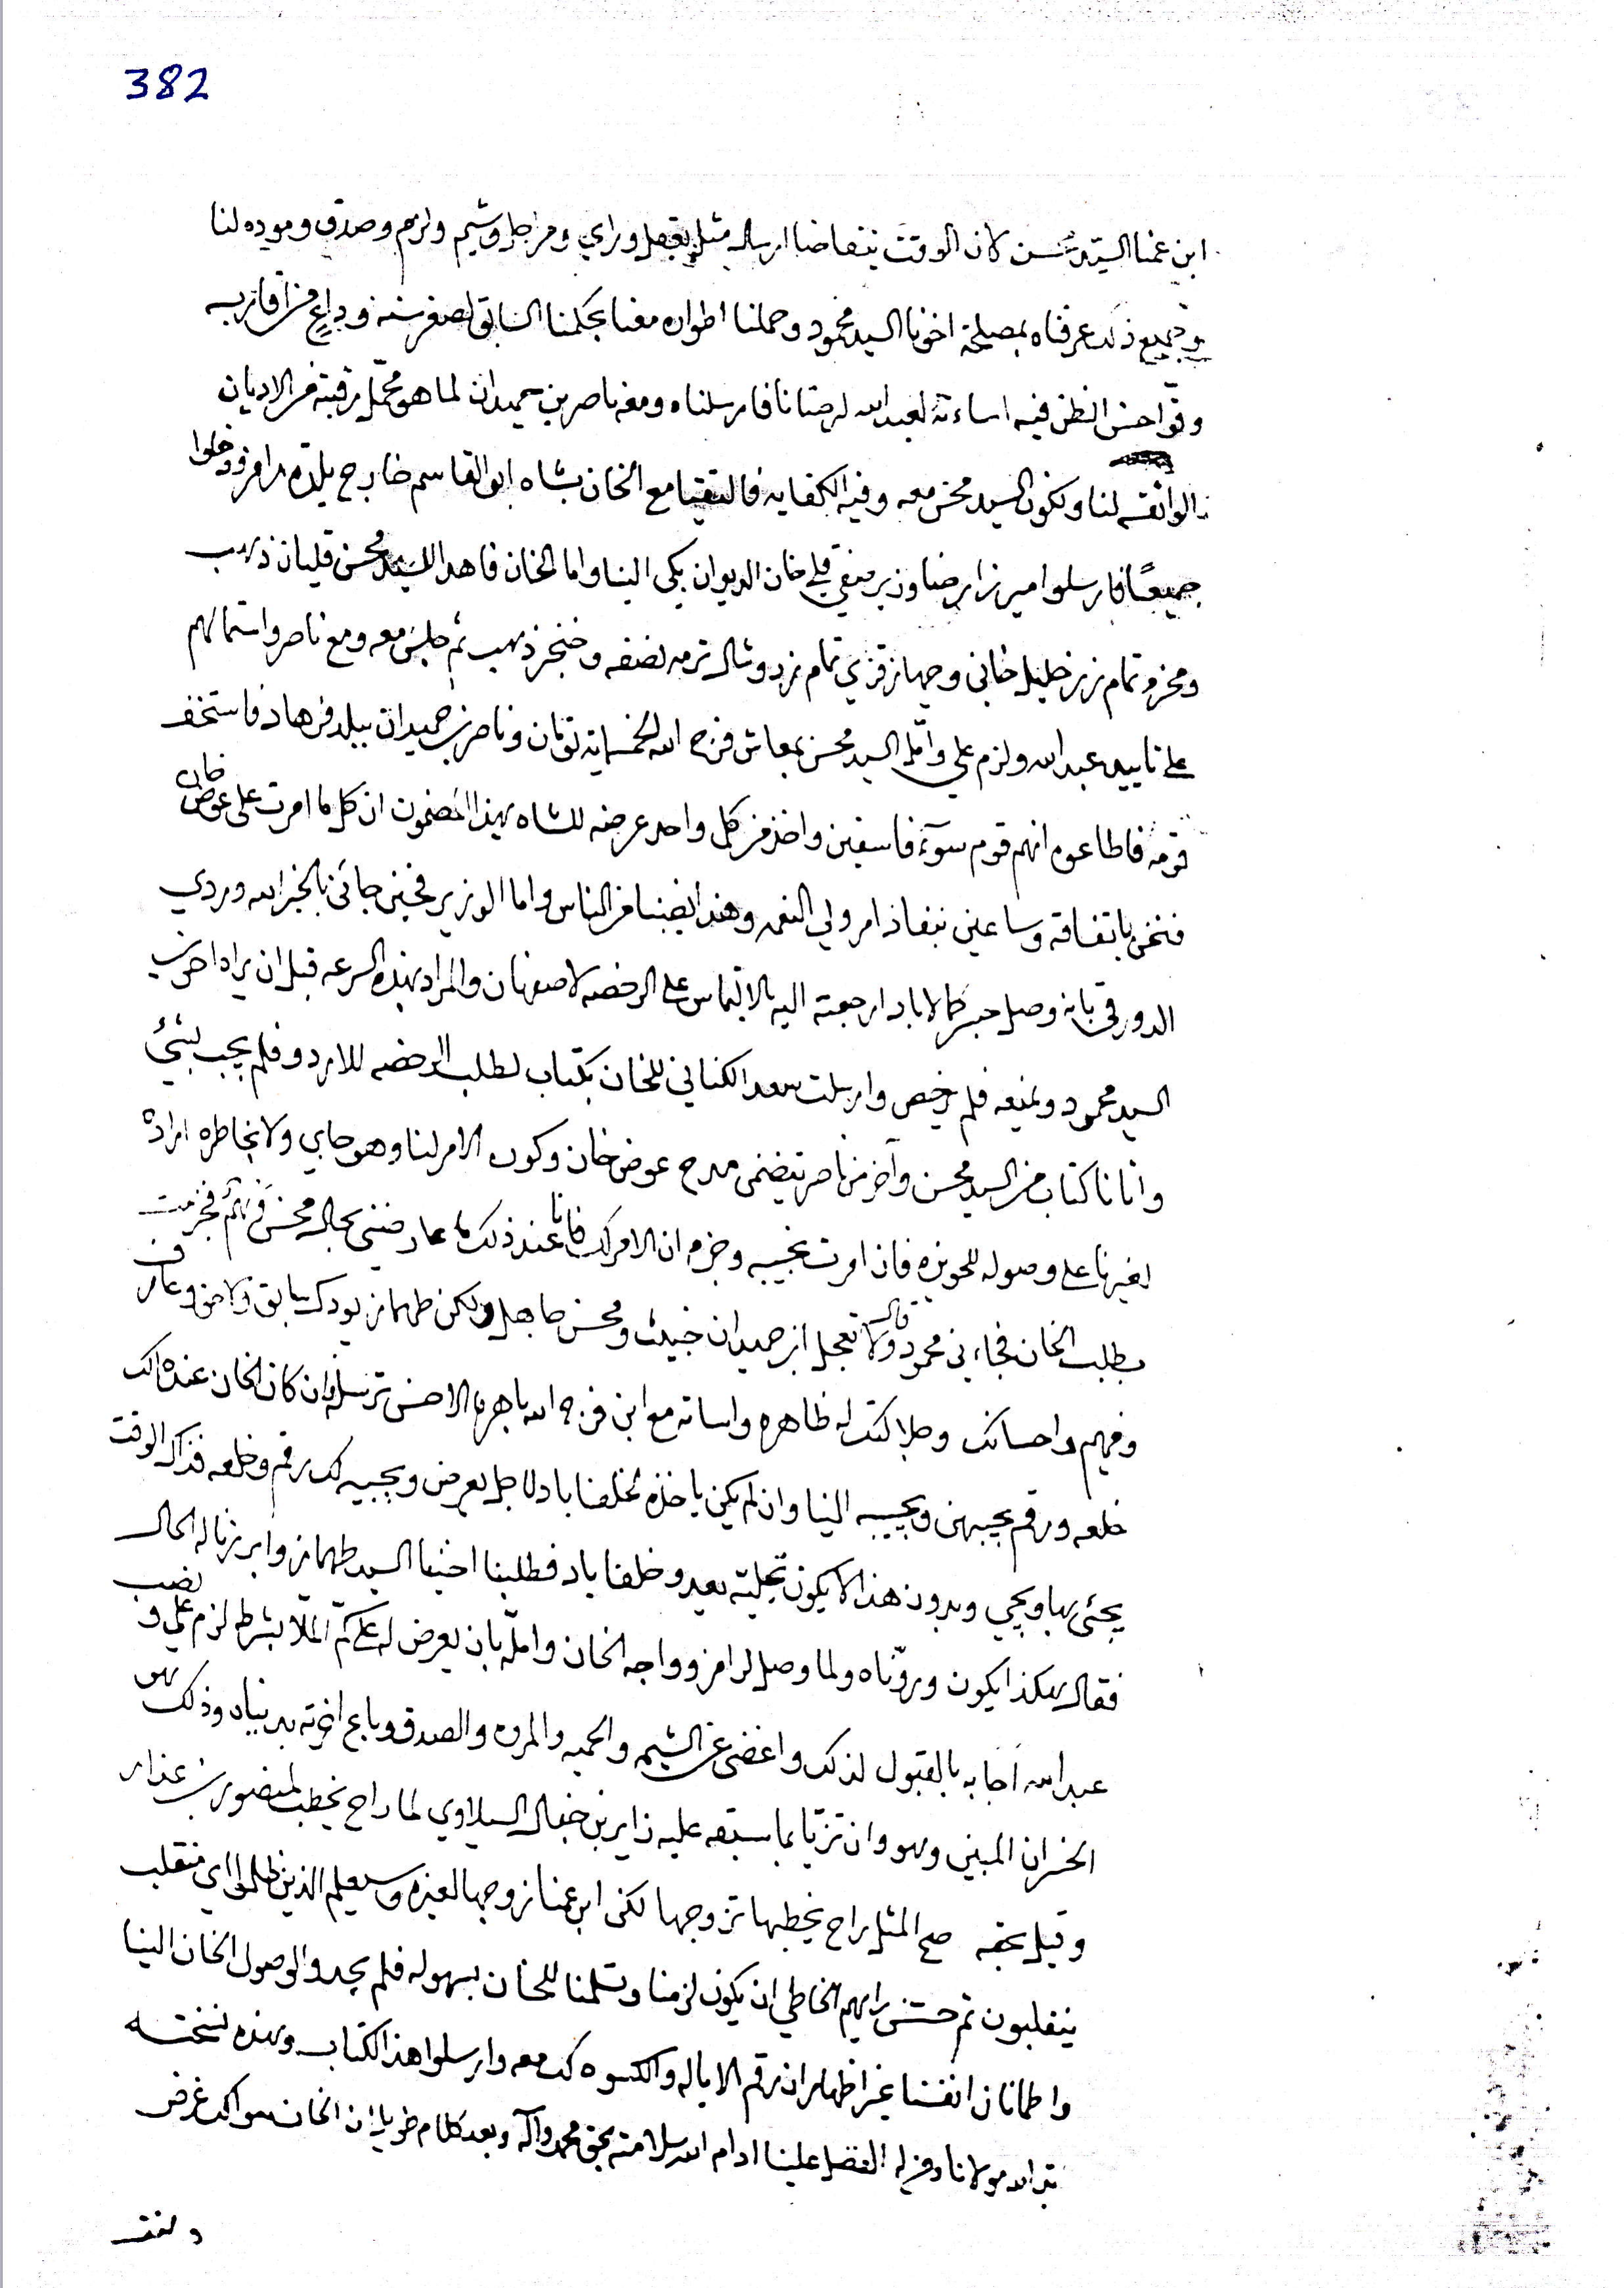 382
ابن عمنا السيد محسن لان الوقت يتقاضا ارساله مثله بعقل وراي ومراجل وشيم ولزم وصدق وموده لنا
وجميع ذلك عرفناه بمصلحة اخونا السيد محمود وحملنا اطواره معنا بحكمنا السابق لصغر سنه وداعي من اقاربه
وقوا حسن الظن فيه اساءته لعبد الله لرضانا فارسلناه ومعه ناصر بن حميدان لما هو محمل رقبته من الاديان
الواثقه لنا ويكون السيد محسن معه وفيه الكفايه فالتقيا مع الخان بشاه ابو القاسم خارج بلدة رامز ودخلوا
جميعًا فارسلوا ميرزا رضا وزير صفي قلي خان الديوان بكي الينا واما الخان فاهدا للسيد محسن قليان ذهب
ومحزم تمام زر خليل خاني وجهاز قزي تمام زر وشال ترمه نصفه وخنجر ذهب ثم جلس معه ومع ناصر واستمالهم
على تاييد عبد الله ولزم علي وامّل السيد محسن بمعاش فرج الله الخمسماية تومان وناصر بن حميدان ببلد فرهاد فاستخف
قومه فاطاعوه انهم قوم سوء فاسقين واخذ من كل واحد عرضه للشاه بهذا المضمون ان كل ما امرت على عوض خان
فنحن باتفاقه وساعين بنفاذ امر ولي النعمه وهذا نصبنا من الناس واما الوزير فحين جائني بالخبر الله وردي
الدورقي بانه وصل جبر كمالاباد ارجعته اليه بالالتماس على الرخصه لاصفهان والمراد بهذه السرعه قبل ان يراه اخوي
السيد محمود ويمنعه فلم يرخص وارسلت سعد الكناني للخان بكتاب لطلب الرخصه للاردو فلم يجب بشيء
واتانا كتاب من السيد محسن وآخر من ناصر يتضمن مدح عوض خان وكون الامر لنا وهو جاي ولا بخاطره اراده
لغيرنا على وصوله للحويزه فان امرت نجيبه وجزم ان الامر لك فانا عند ذلك ما عارضني بحال محسن فهم فجزمت
بطلب الخان فجاءني محمود وقال لا تعجل ابن حميدان خبيث ومحسن جاهل ولكن طهماز يودك سابق ولاحق وعارف
وفهيم واحسانك وجلالتك له ظاهره واساته مع ابن فرج الله باهره الاحسن ترسله وان كان الخان عنده لك
خلعه ورقم يجيبهن ويجيبه الينا وان لم يكن ياخذه لخلفاباد لاجل يعرض ويجيبه لك رقم وخلعه فذاك الوقت
يجئ بها ويجي وبدون هذا لا يكون تجليته بعد وخلفاباد فطلبنا اخينا السيد طهماز وابرزنا له الحال
فقال هكذا يكون وروّناه ولما وصل لرامز وواجه الخان وامله بان يعرض له على كم المّلا بشرط لزم علي ونصب
عبد الله اجابه بالقبول لذلك واغضى عن الشيمه والحميه والمروه والصدق وباع اخوته بدنياه وذلك هو
الخسران المبين وهو وان تزيّا بما سبقه عليه زاير بن خنفال السيلاوي لما راح يخطب لمنصور بن عذار
وقيل بحقه صح المثل راح يخطبها تزوجها لكن ابن عمنا زوجها لغيره وسيعلم الذين ظلموا اي منقلب
ينقلبون ثم حسّن رايهم الخاطي ان يكون لزمنا وتسلمنا للخان بسهوله فلم يجدوا لوصول الخان الينا
واطمانان انفسنا غير اظهار ان رقم الاياله والكسوه لك معه وارسلوا هذا الكتاب وهذه نسخته
مولانا ومن له الفضل علينا ادام الله سلامته بحق محمد وآله وبعد كلام طويل ان الخان سواك غرض